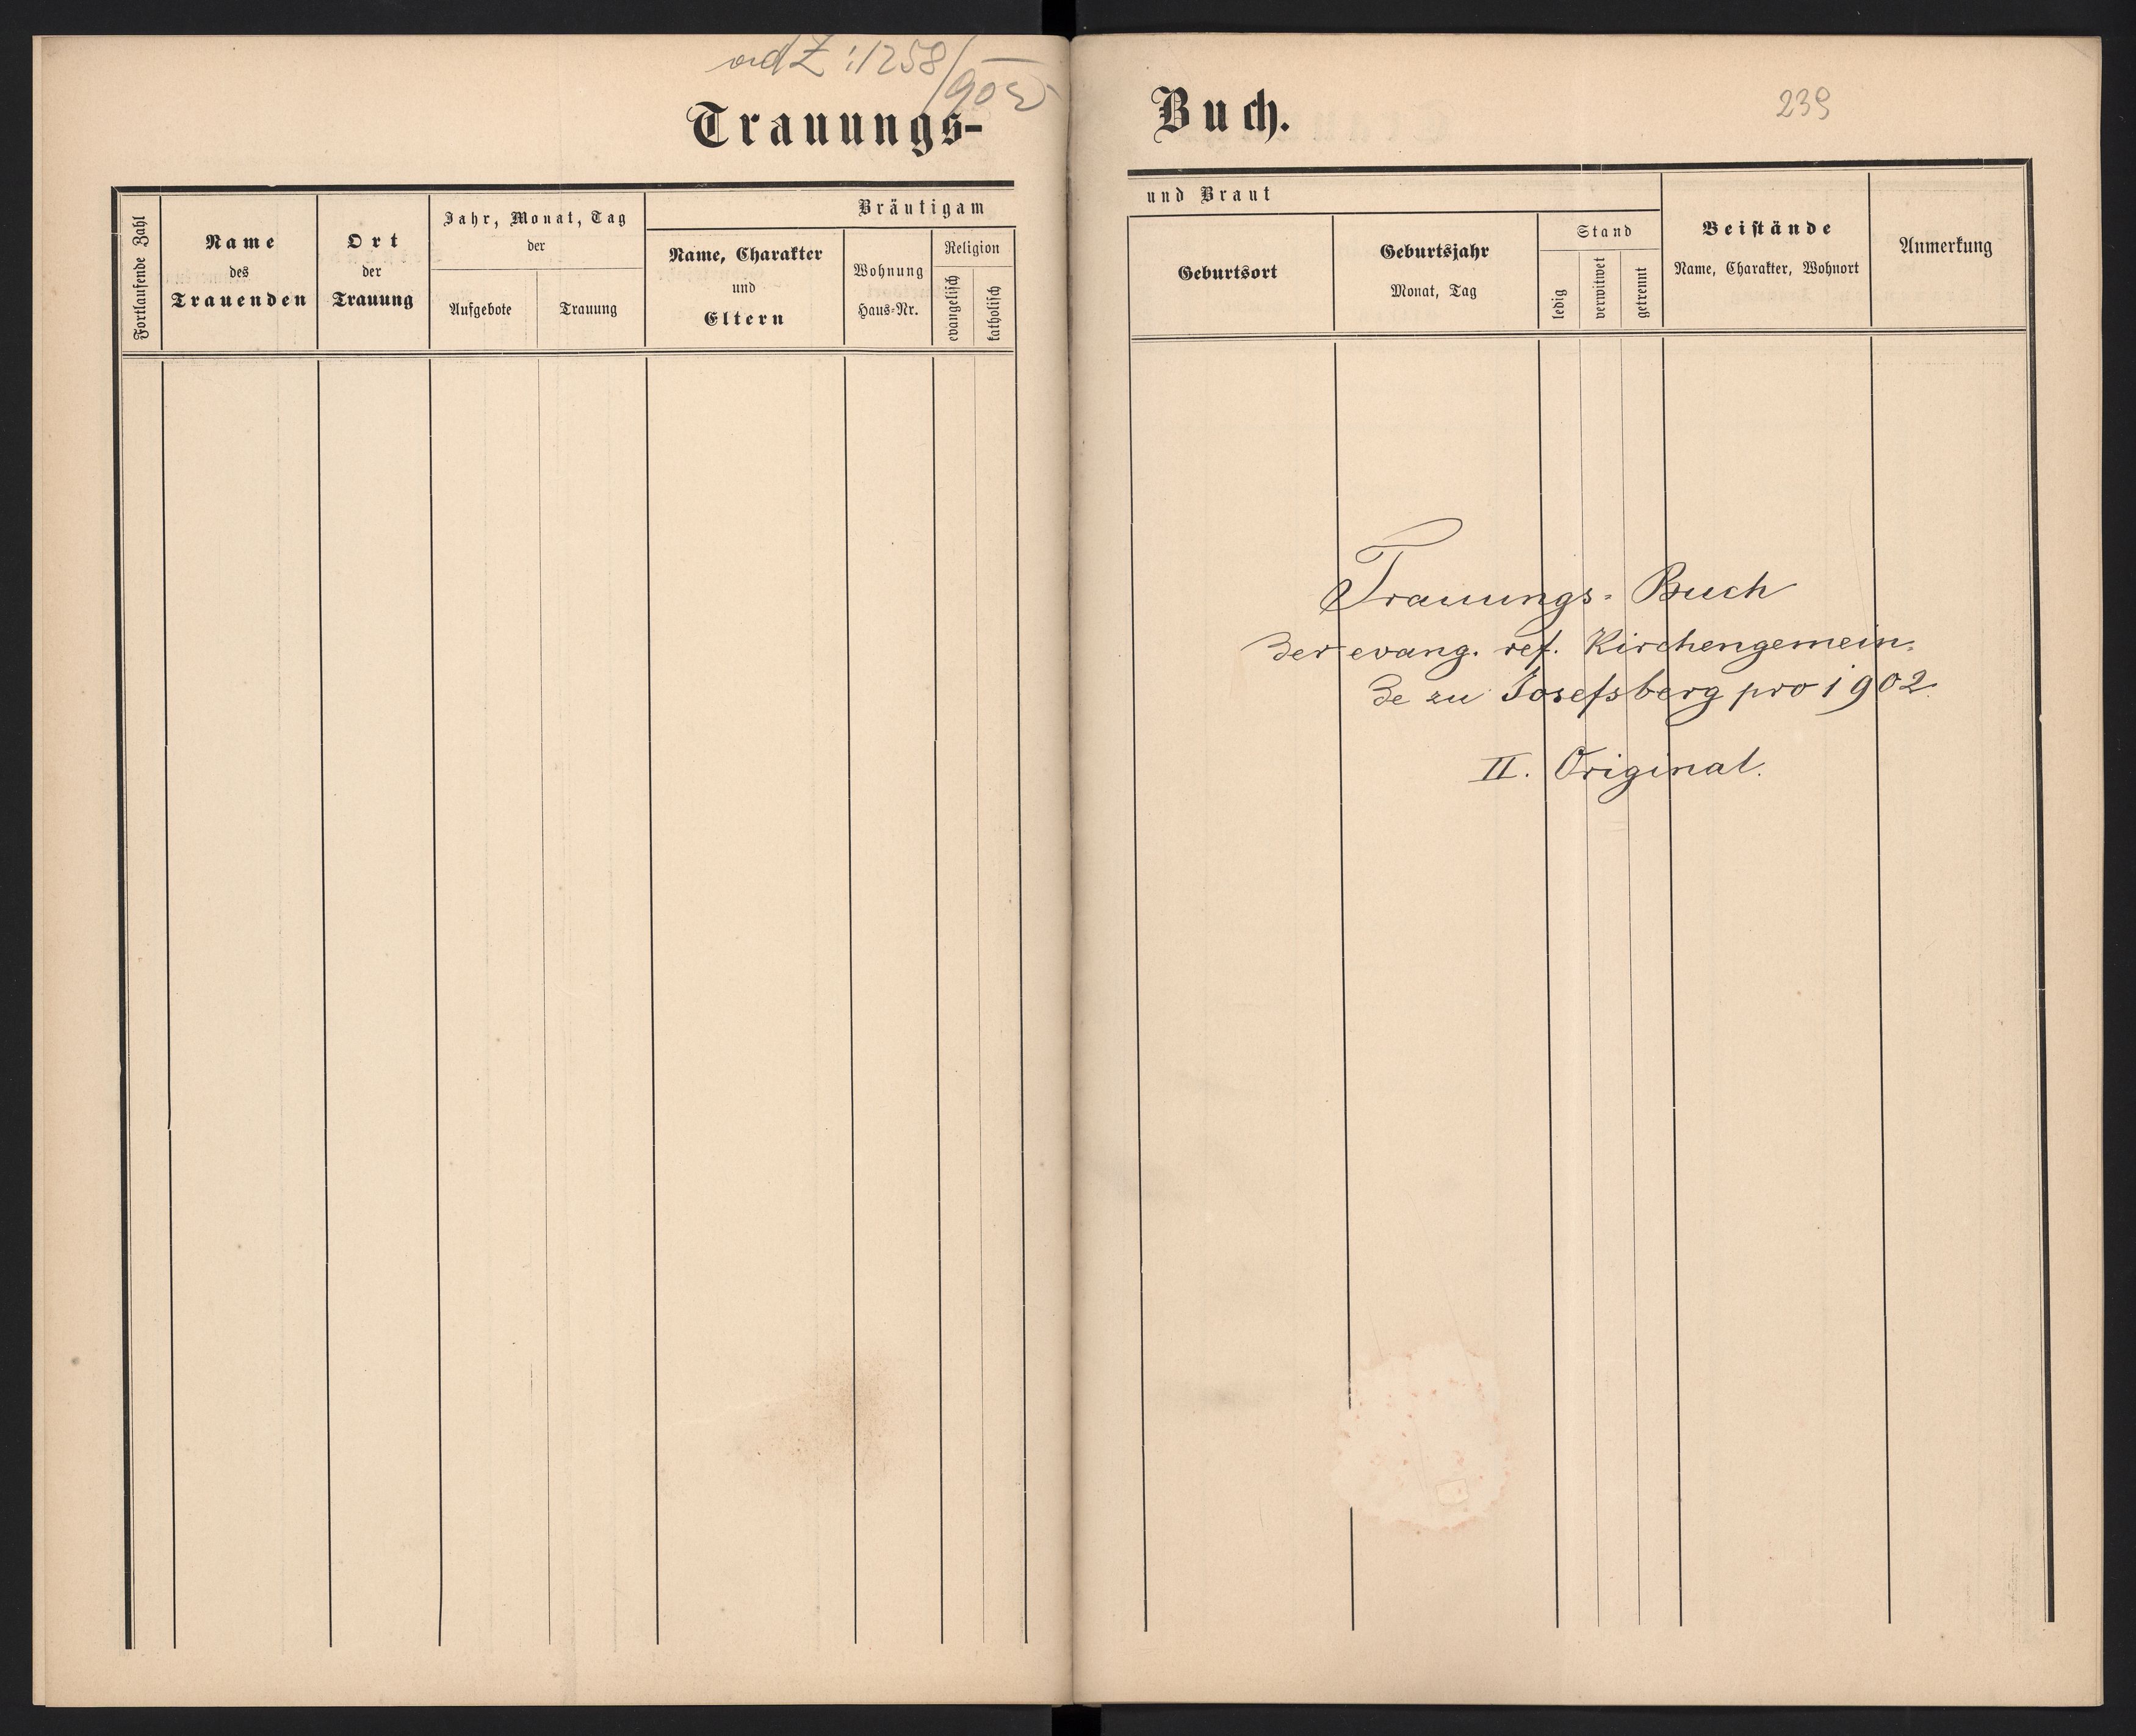 ad Z: 1258/902
Trauungs-
Fortlaufende Zahl
Name
des
Trauenden
Ort
der
Trauung
Jahr, Monat, Tag
der
Aufgebote
Trauung
Bräutigam
Name, Charakter
und
Eltern
Wohnung
Haus-Nr.
Religion
evangelisch
katholisch
Buch.
239
und Braut
Geburtsort
Geburtsjahr
Monat, Tag
Stand
ledig
verwitwet
getrennt
Beistände
Name, Charakter, Wohnort
Anmerkung
Trauungs-Buch
der evang. ref. Kirchengemein-
de zu Josefsberg pro 1902.
II. Original.